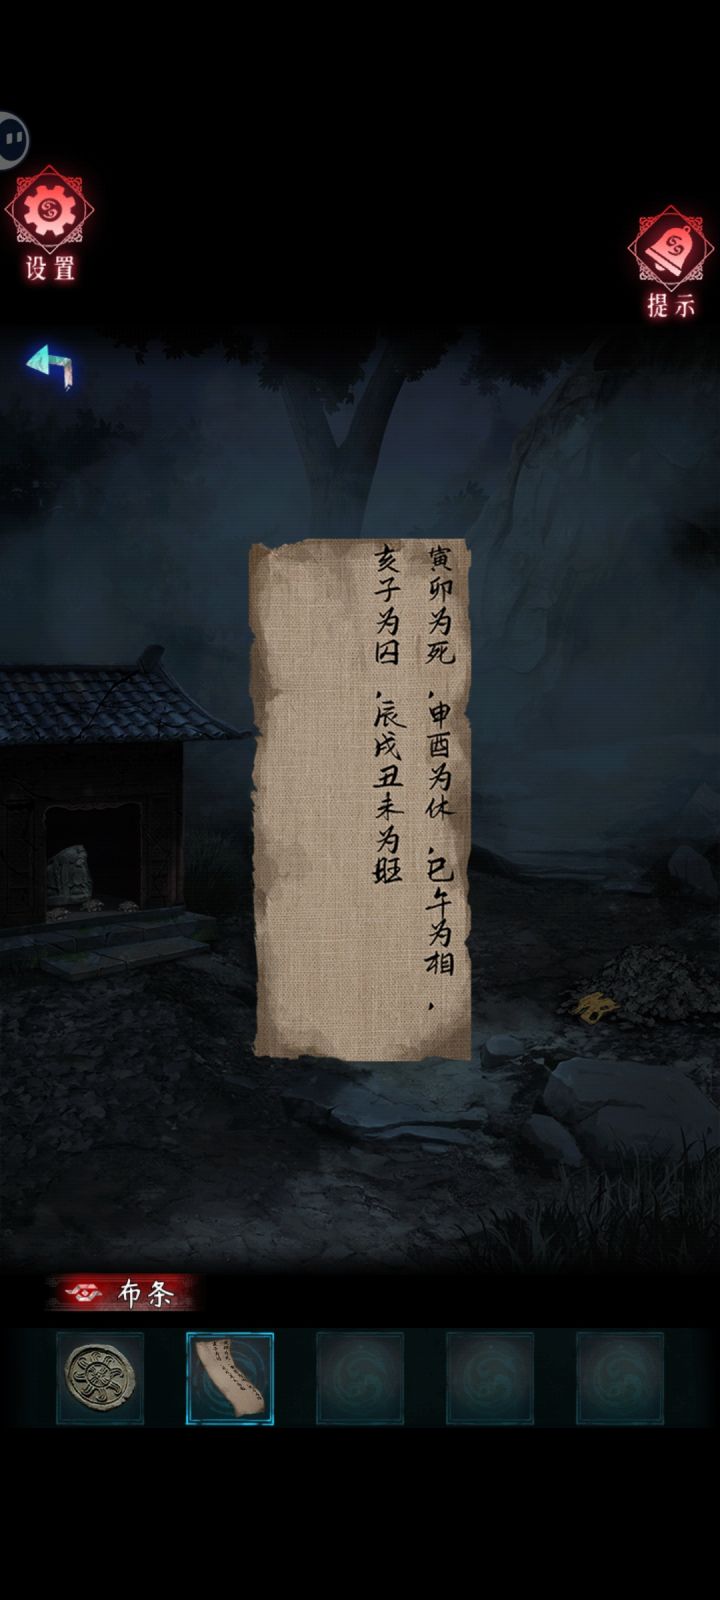 设置
提示
寅卯为死,申酉为休,巳午为相,
亥子为囚,辰戌丑未为旺
布条